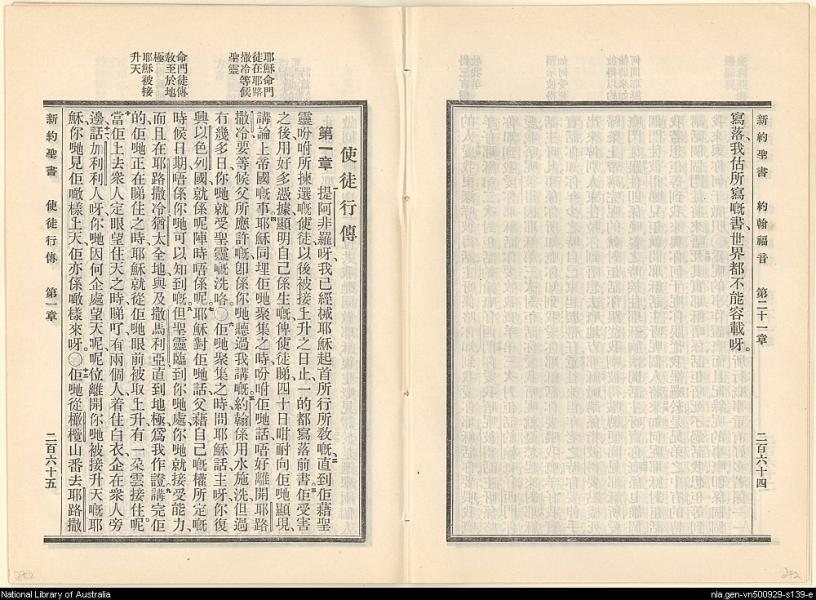 新約聖書 約翰福音 第二十一章 二百六十四
寫落、我估所寫嘅書、世界都不能容載呀。
使徒行傳
第一章 提阿非羅呀、我已經械耶穌起首所行所教嘅、直到佢藉聖
靈吩咐所揀選嘅使徒、以後被接上升之日止、一的都寫落前書。佢受害
之後、用好多憑據、顯明自己係生嘅、俾使徒睇、四十日咁耐、向佢哋顯現、
講論上帝國嘅事。耶穌同埋佢哋聚集之時、吩咐佢哋話、唔好離開耶路
撒冷、要等候父所應許嘅、卽係你哋聽過我講嘅。約翰係用水施洗、但過
有幾多日、你哋就受聖靈嘅洗咯。〇佢哋聚集之時、問耶穌話、主呀、你復
興以色列國、就係呢陣時唔係呢。耶穌對佢哋話、父藉自己嘅權所定嘅
時候日期、唔係你哋可以知到嘅。但聖靈臨到你哋處、你哋就接受能力、
而且在耶路撒冷、猶太全地、與及撒馬利亞、直到地極、爲我作證。講完、佢
的、佢哋正在睇住之時、耶穌就從佢哋眼前被取上升、有一朵雲接住呢。
當佢上去、衆人定眼望住天之時、睇吖、有兩個人着住白衣、企在衆人旁
邊、話、加利利人呀、你哋因何企處望天呢、呢位離開你哋、被接升天嘅耶
穌、你哋見佢噉樣上天、佢亦係噉樣來呀。〇佢哋從橄欖山番去耶路撒
耶穌命門
徒在耶路
撒冷等候
聖靈
命門徒傳
教至於地
極
耶穌被接
升天
新約聖書 使徒行傳 第一章 二百六十五
National Library of Australia
nla.gen-vn500929-s139-e